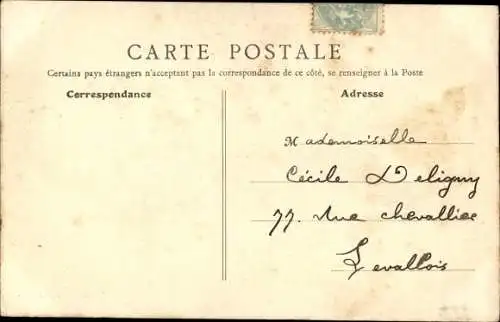 CARTE POSTALE
Certains pays étrangers n'acceptant pas la correspondance de ce côté, se renseigner à la Poste
Correspondance
Adresse
Mademoiselle
Cécile Deligny
77. Rue chevallier
Levallois